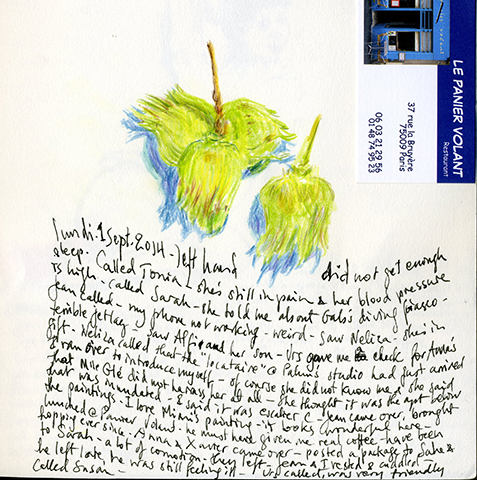 LE PANIER VOLANT
Restaurant
37 rue la Bruyère
75009 Paris
06 03 21 29 56
01 48 74 95 23
lundi. 1 Sept. 2014 - left hand did not get enough
sleep. Called Tonia - she's still in pain & her blood pressure
is high. Called Sarah - she told me about Gab's diving fiasco -
Jean called - my phone not working - weird - Saw Nelica - she's in
terrible jetlag - saw Alfie and her son - Urs gave me check for Anna's
gift. Nelica called that the "locataire" @ studio had just arrived
& I ran over to introduce myself - of course she did not know me & she said
that Mlle Glé did not harass her at all - she thought it was the apt below
that was inundated - & I said it was escalier C - Jean came over, brought
the paintings - I love Mimi's painting - it looks wonderful here -
lunched @ Panier Volant - he must have given me real coffee - have been
hopping ever since. Anna & Xavier came over - posted a package to &
to Sarah - a lot of commotion - they left. Jean & I rested & cuddled -
he left late, he was still feeling ill - Urs called, was very friendly
called Susan -